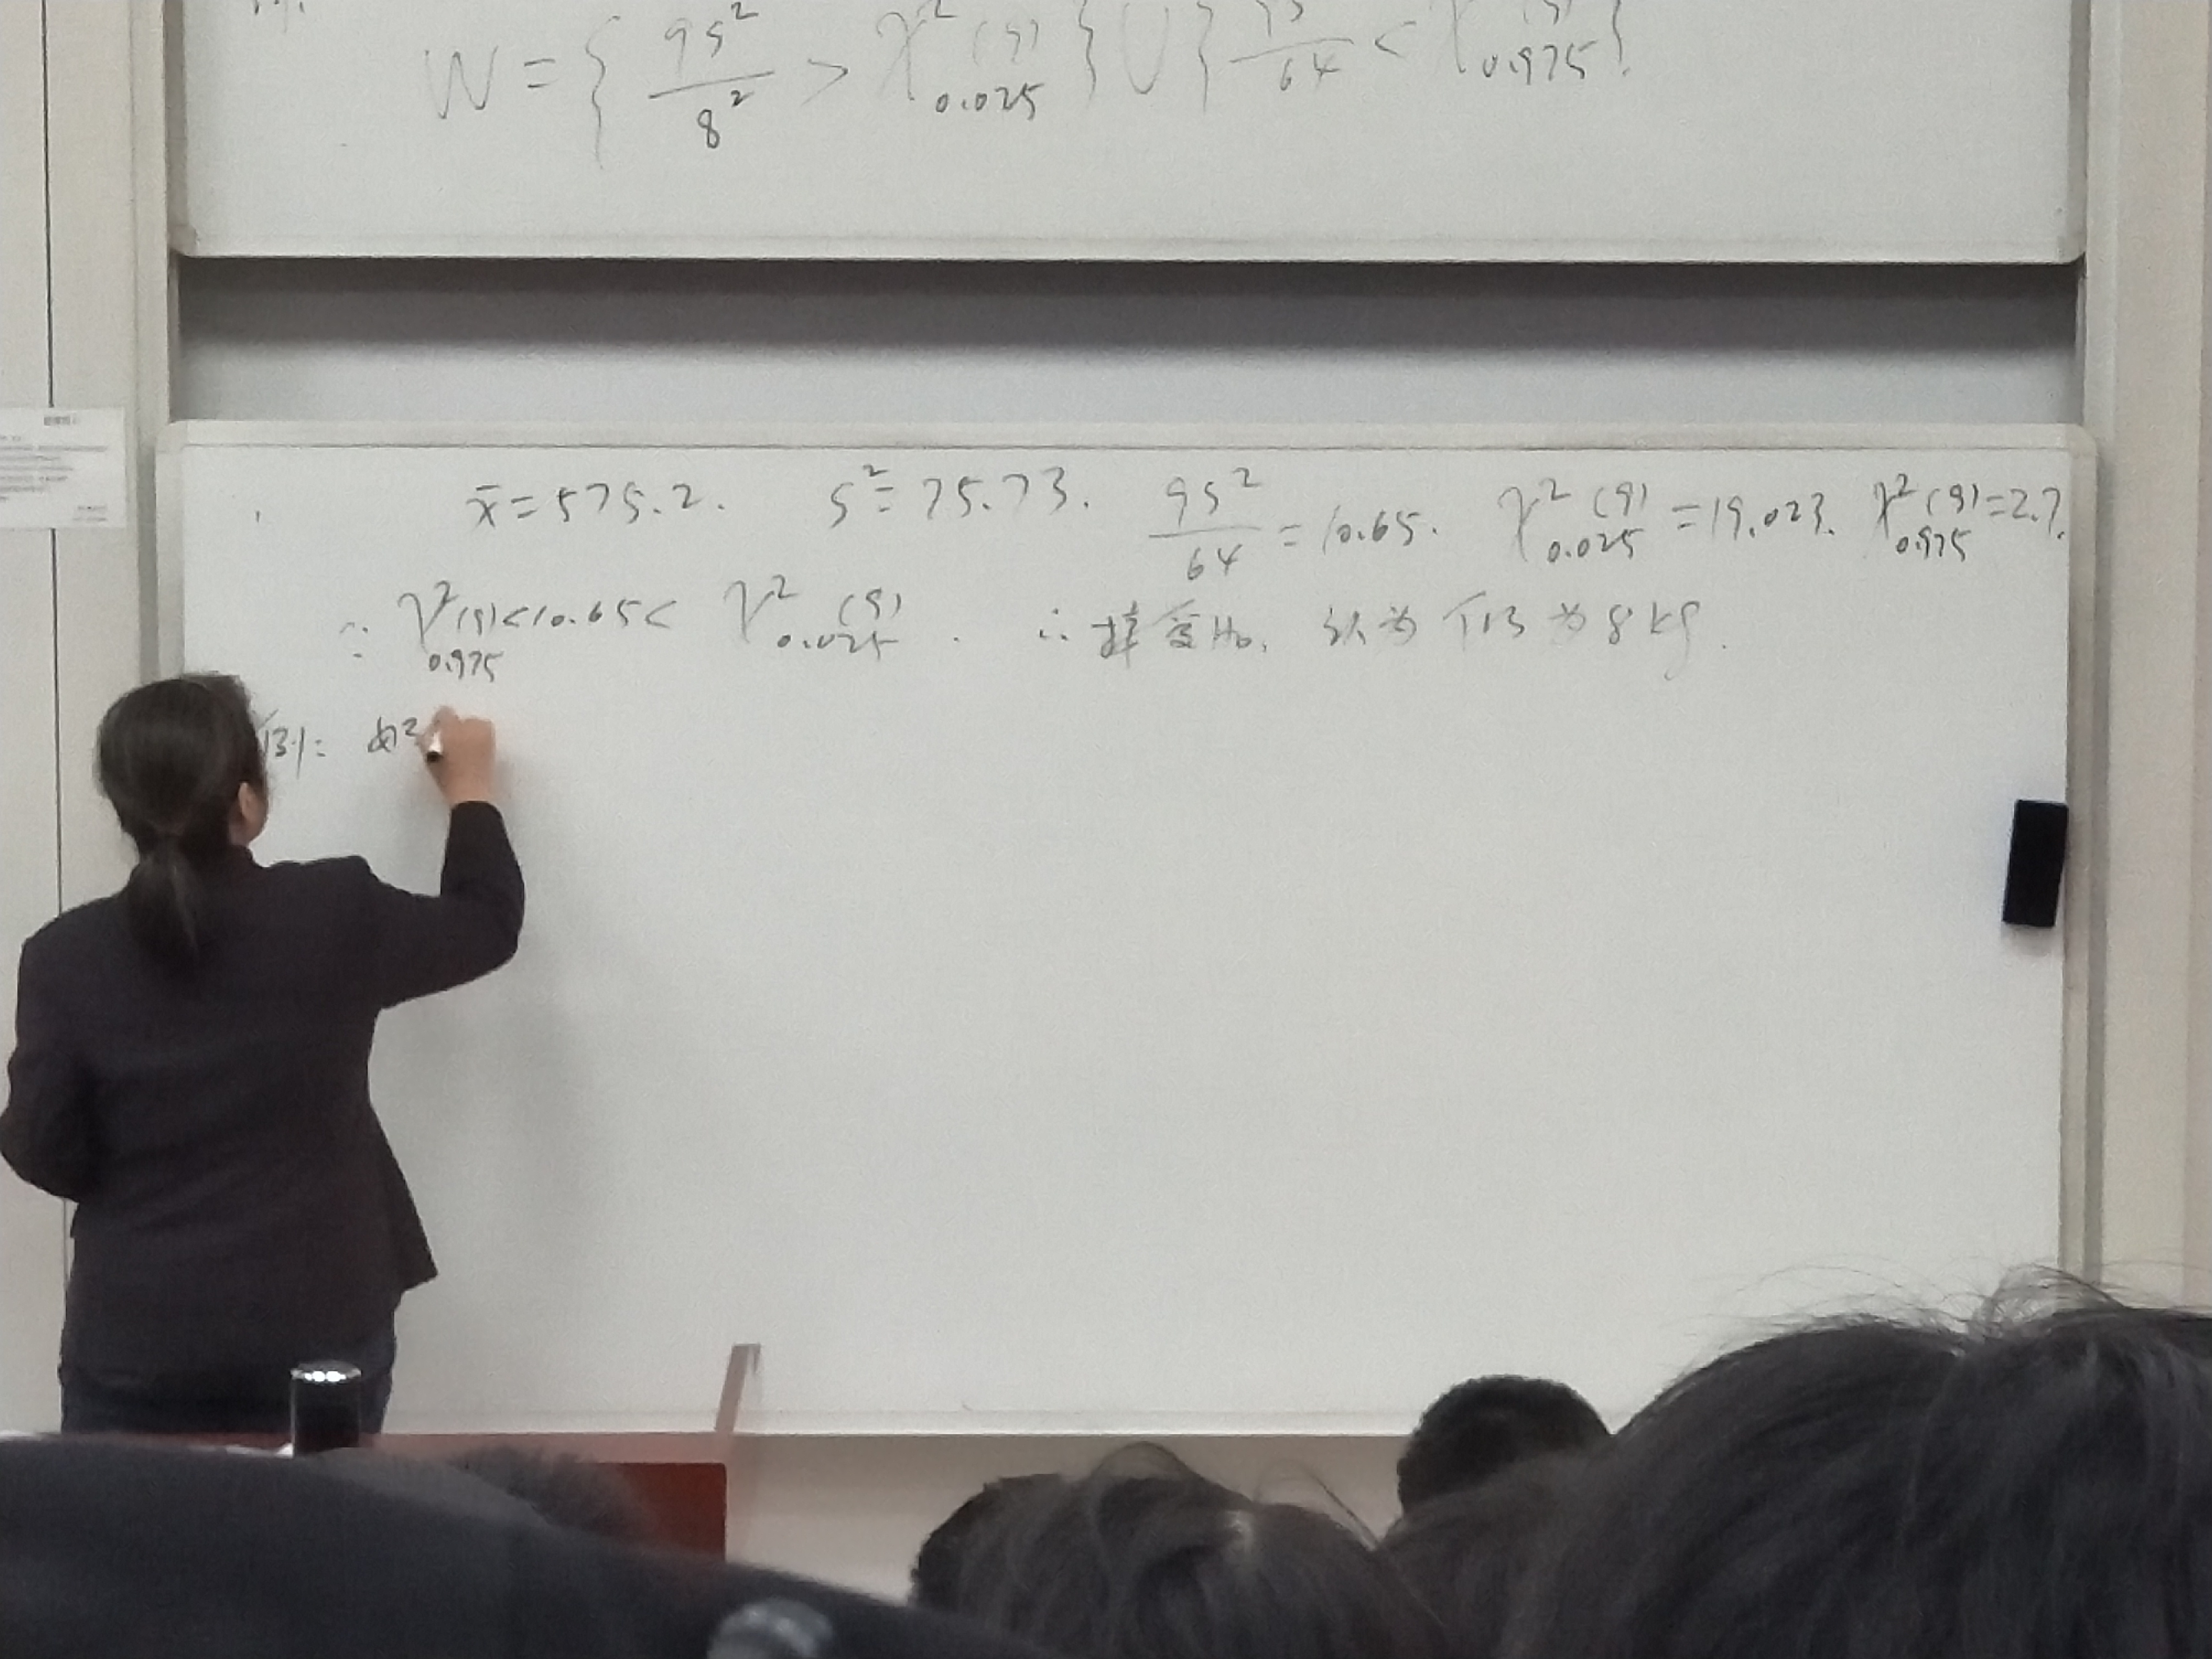 W = { 9S² / 8² > χ²₀.₀₂₅(9) } ∪ { 9S² / 64 < χ²₀.₉₇₅(9) }.
x̄ = 575.2. S² = 75.73. 9S² / 64 = 10.65. χ²₀.₀₂₅(9) = 19.023. χ²₀.₉₇₅(9) = 2.7.
∵ χ²₀.₉₇₅(9) < 10.65 < χ²₀.₀₂₅(9). ∴ 接受H₀, 认为 为 8 kg.
例: